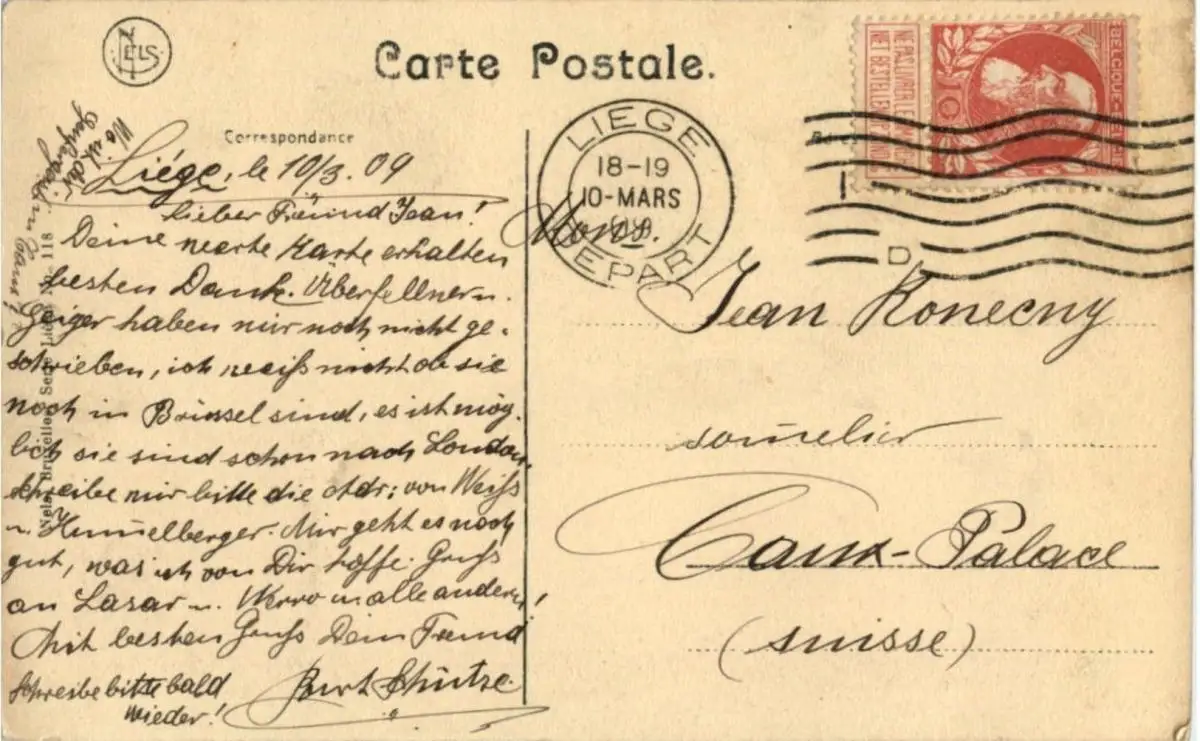 NELS
Carte Postale.
Correspondance
BELGIQUE-BELGIE
10
NE PAS LIVRER LE DIMANCHE
NIET BESTELLEN OP ZONDAG
LIEGE
18-19
10-MARS
DEPART
D
Liége, le 10/3. 09
Lieber Freund Jean!
Deine werte Karte erhalten
besten Dank. Überfellner u.
Geiger haben mir noch nicht ge-
schrieben, ich weiß nicht ob sie
noch in Brüssel sind, es ist mög-
lich sie sind schon nach London.
Schreibe mir bitte die Adr: von Weiß
u. Hummelberger. Mir geht es noch
gut, was ich von Dir hoffe. Gruß
an Lazar u. Werro u. alle andern!
Mit besten Gruß Dein Freund
Schütze.
Schreibe bitte bald
wieder!
Wo ist der
in Caux?
Nels, Bruxelles Serie Liége No. 118
Mons.
Jean Konecny
sommelier
Caux-Palace
(suisse)